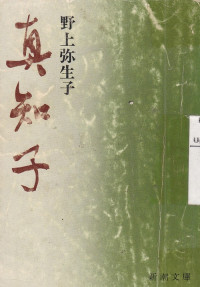 真知子
野上弥生子
新潮文庫